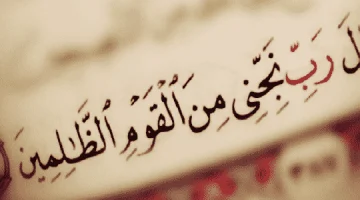 رَبِّ نَجِّنِى مِنَ ٱلْقَوْمِ ٱلظَّٰلِمِينَ